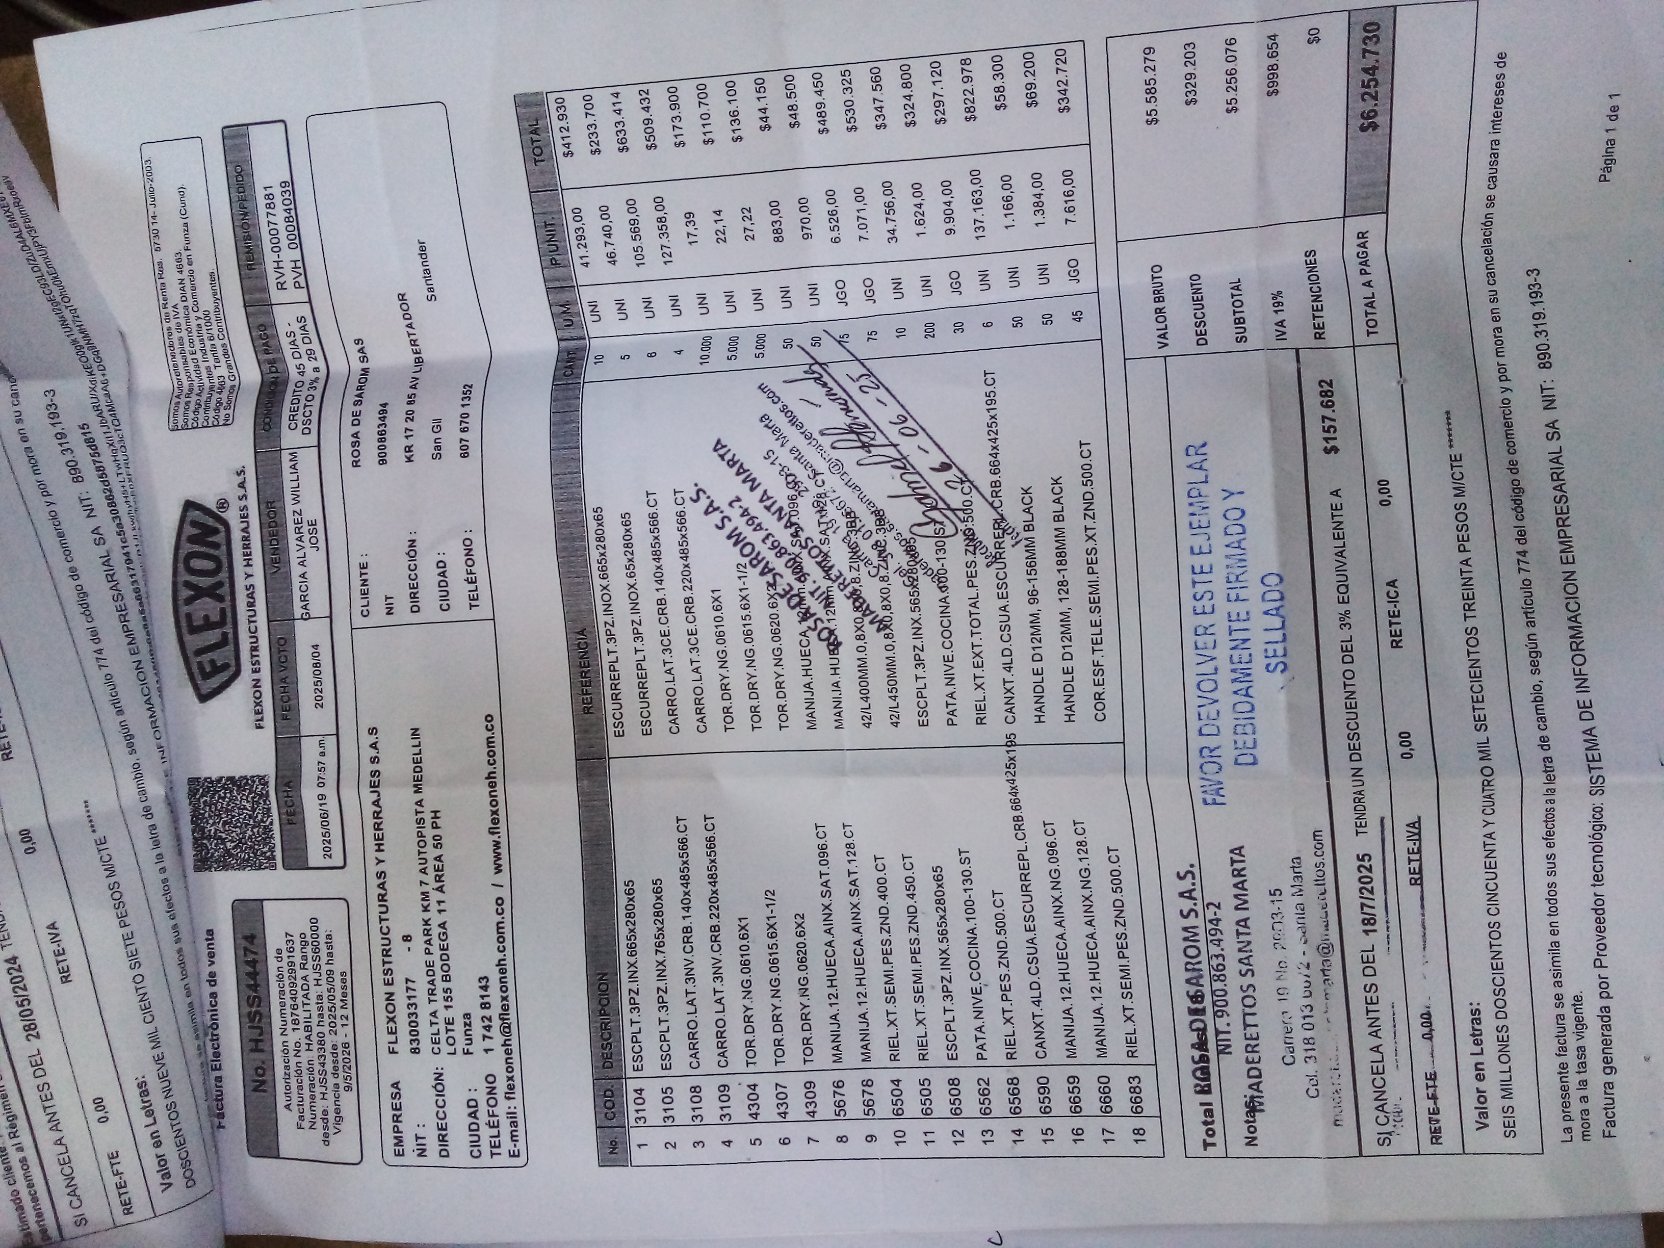 Estimado cliente
pertenecemos al Régimen
SI CANCELA ANTES DEL 28/05/2024
RETE-FTE 0,00 RETE-IVA 0,00
Valor en Letras:
DOSCIENTOS NUEVE MIL CIENTO SIETE PESOS M/CTE *******
Factura Electrónica de venta
No. HJSS44474
Autorización Numeración de
Facturación No. 18764092991637
Numeración: HABILITADA Rango
desde: HJSS43380 hasta: HJSS60000
Vigencia desde: 2025/05/09 hasta:
9/5/2026 - 12 Meses
FLEXON ®
FLEXON ESTRUCTURAS Y HERRAJES S.A.S.
Somos Autoretenedores de Renta Res. 5730 14-Julio-2003.
Somos Responsables de IVA
Código Actividad Económica DIAN 4663.
Contribuyentes Industria y Comercio en Funza (Cund).
Código 4663 Tarifa 6/1000
No Somos Grandes Contribuyentes.
FECHA FECHA VCTO VENDEDOR CONDICION DE PAGO REMISION/PEDIDO
2025/06/19 07:57 a.m. 2025/08/04 GARCIA ALVAREZ WILLIAM JOSE CREDITO 45 DIAS - DSCTO 3% a 29 DIAS RVH-00077881 PVH 00084039
EMPRESA FLEXON ESTRUCTURAS Y HERRAJES S.A.S
NIT : 830033177 - 8
DIRECCIÓN: CELTA TRADE PARK KM 7 AUTOPISTA MEDELLIN
LOTE 155 BODEGA 11 ÁREA 50 PH
CIUDAD : Funza
TELÉFONO 1 742 8143
E-mail: flexoneh@flexoneh.com.co / www.flexoneh.com.co
CLIENTE : ROSA DE SAROM SAS
NIT 900863494
DIRECCIÓN : KR 17 20 85 AV LIBERTADOR
CIUDAD : San Gil Santander
TELÉFONO : 607 670 1352
No. COD. DESCRIPCION REFERENCIA CANT. U.M. P.UNIT. TOTAL
1 3104 ESCPLT.3PZ.INX.665x280x65 ESCURREPLT.3PZ.INOX.665x280x65 10 UNI 41.293,00 $412.930
2 3105 ESCPLT.3PZ.INX.765x280x65 ESCURREPLT.3PZ.INOX.65x280x65 5 UNI 46.740,00 $233.700
3 3108 CARRO.LAT.3NV.CRB.140x485x566.CT CARRO.LAT.3CE.CRB.140x485x566.CT 6 UNI 105.569,00 $633.414
4 3109 CARRO.LAT.3NV.CRB.220x485x566.CT CARRO.LAT.3CE.CRB.220x485x566.CT 4 UNI 127.358,00 $509.432
5 4304 TOR.DRY.NG.0610.6X1 TOR.DRY.NG.0610.6X1 10.000 UNI 17,39 $173.900
6 4307 TOR.DRY.NG.0615.6X1-1/2 TOR.DRY.NG.0615.6X1-1/2 5.000 UNI 22,14 $110.700
7 4309 TOR.DRY.NG.0620.6X2 TOR.DRY.NG.0620.6X2 5.000 UNI 27,22 $136.100
8 5676 MANIJA.12.HUECA.AINX.SAT.096.CT 50 UNI 883,00 $44.150
9 5678 MANIJA.12.HUECA.AINX.SAT.128.CT 50 UNI 970,00 $48.500
10 6504 RIEL.XT.SEMI.PES.ZND.400.CT 75 JGO 6.526,00 $489.450
11 6505 RIEL.XT.SEMI.PES.ZND.450.CT 75 JGO 7.071,00 $530.325
12 6508 ESCPLT.3PZ.INX.565x280x65 ESCPLT.3PZ.INX.565x280x65 10 UNI 34.756,00 $347.560
13 6562 PATA.NIVE.COCINA.100-130.ST 200 UNI 1.624,00 $324.800
14 6568 RIEL.XT.PES.ZND.500.CT RIEL.XT.EXT.TOTAL.PES.ZND.500.CT 30 JGO 9.904,00 $297.120
15 6590 CANXT.4LD.CSUA.ESCURREPL.CRB.664x425x195 CANXT.4LD.CSUA.ESCURREPL.CRB.664x425x195.CT 6 UNI 137.163,00 $822.978
16 6659 MANIJA.12.HUECA.AINX.NG.096.CT HANDLE D12MM, 96-156MM BLACK 50 UNI 1.166,00 $58.300
17 6660 MANIJA.12.HUECA.AINX.NG.128.CT HANDLE D12MM, 128-188MM BLACK 50 UNI 1.384,00 $69.200
18 6683 RIEL.XT.SEMI.PES.ZND.500.CT COR.ESF.TELE.SEMI.PES.XT.ZND.500.CT 45 JGO 7.616,00 $342.720
ROSA DE SAROM S.A.S.
NIT. 900.863.494-2
MADERETTOS SANTA MARTA
26-06-25
VALOR BRUTO $5.585.279
DESCUENTO $329.203
SUBTOTAL $5.256.076
IVA 19% $998.654
RETENCIONES $0
TOTAL A PAGAR $6.254.730
ROSA DE SAROM S.A.S.
NIT. 900.863.494-2
MADERETTOS SANTA MARTA
Cel. 318 013
Notas:
FAVOR DEVOLVER ESTE EJEMPLAR
DEBIDAMENTE FIRMADO Y
SELLADO
SI CANCELA ANTES DEL 18/7/2025 TENDRA UN DESCUENTO DEL 3% EQUIVALENTE A $157.682
RETE-FTE 0,00 RETE-IVA 0,00 RETE-ICA 0,00
Valor en Letras:
SEIS MILLONES DOSCIENTOS CINCUENTA Y CUATRO MIL SETECIENTOS TREINTA PESOS M/CTE *******
La presente factura se asimila en todos sus efectos a la letra de cambio, según artículo 774 del código de comercio y por mora en su cancelación se causara intereses de
mora a la tasa vigente.
Factura generada por Proveedor tecnológico: SISTEMA DE INFORMACION EMPRESARIAL SA NIT: 890.319.193-3
Página 1 de 1